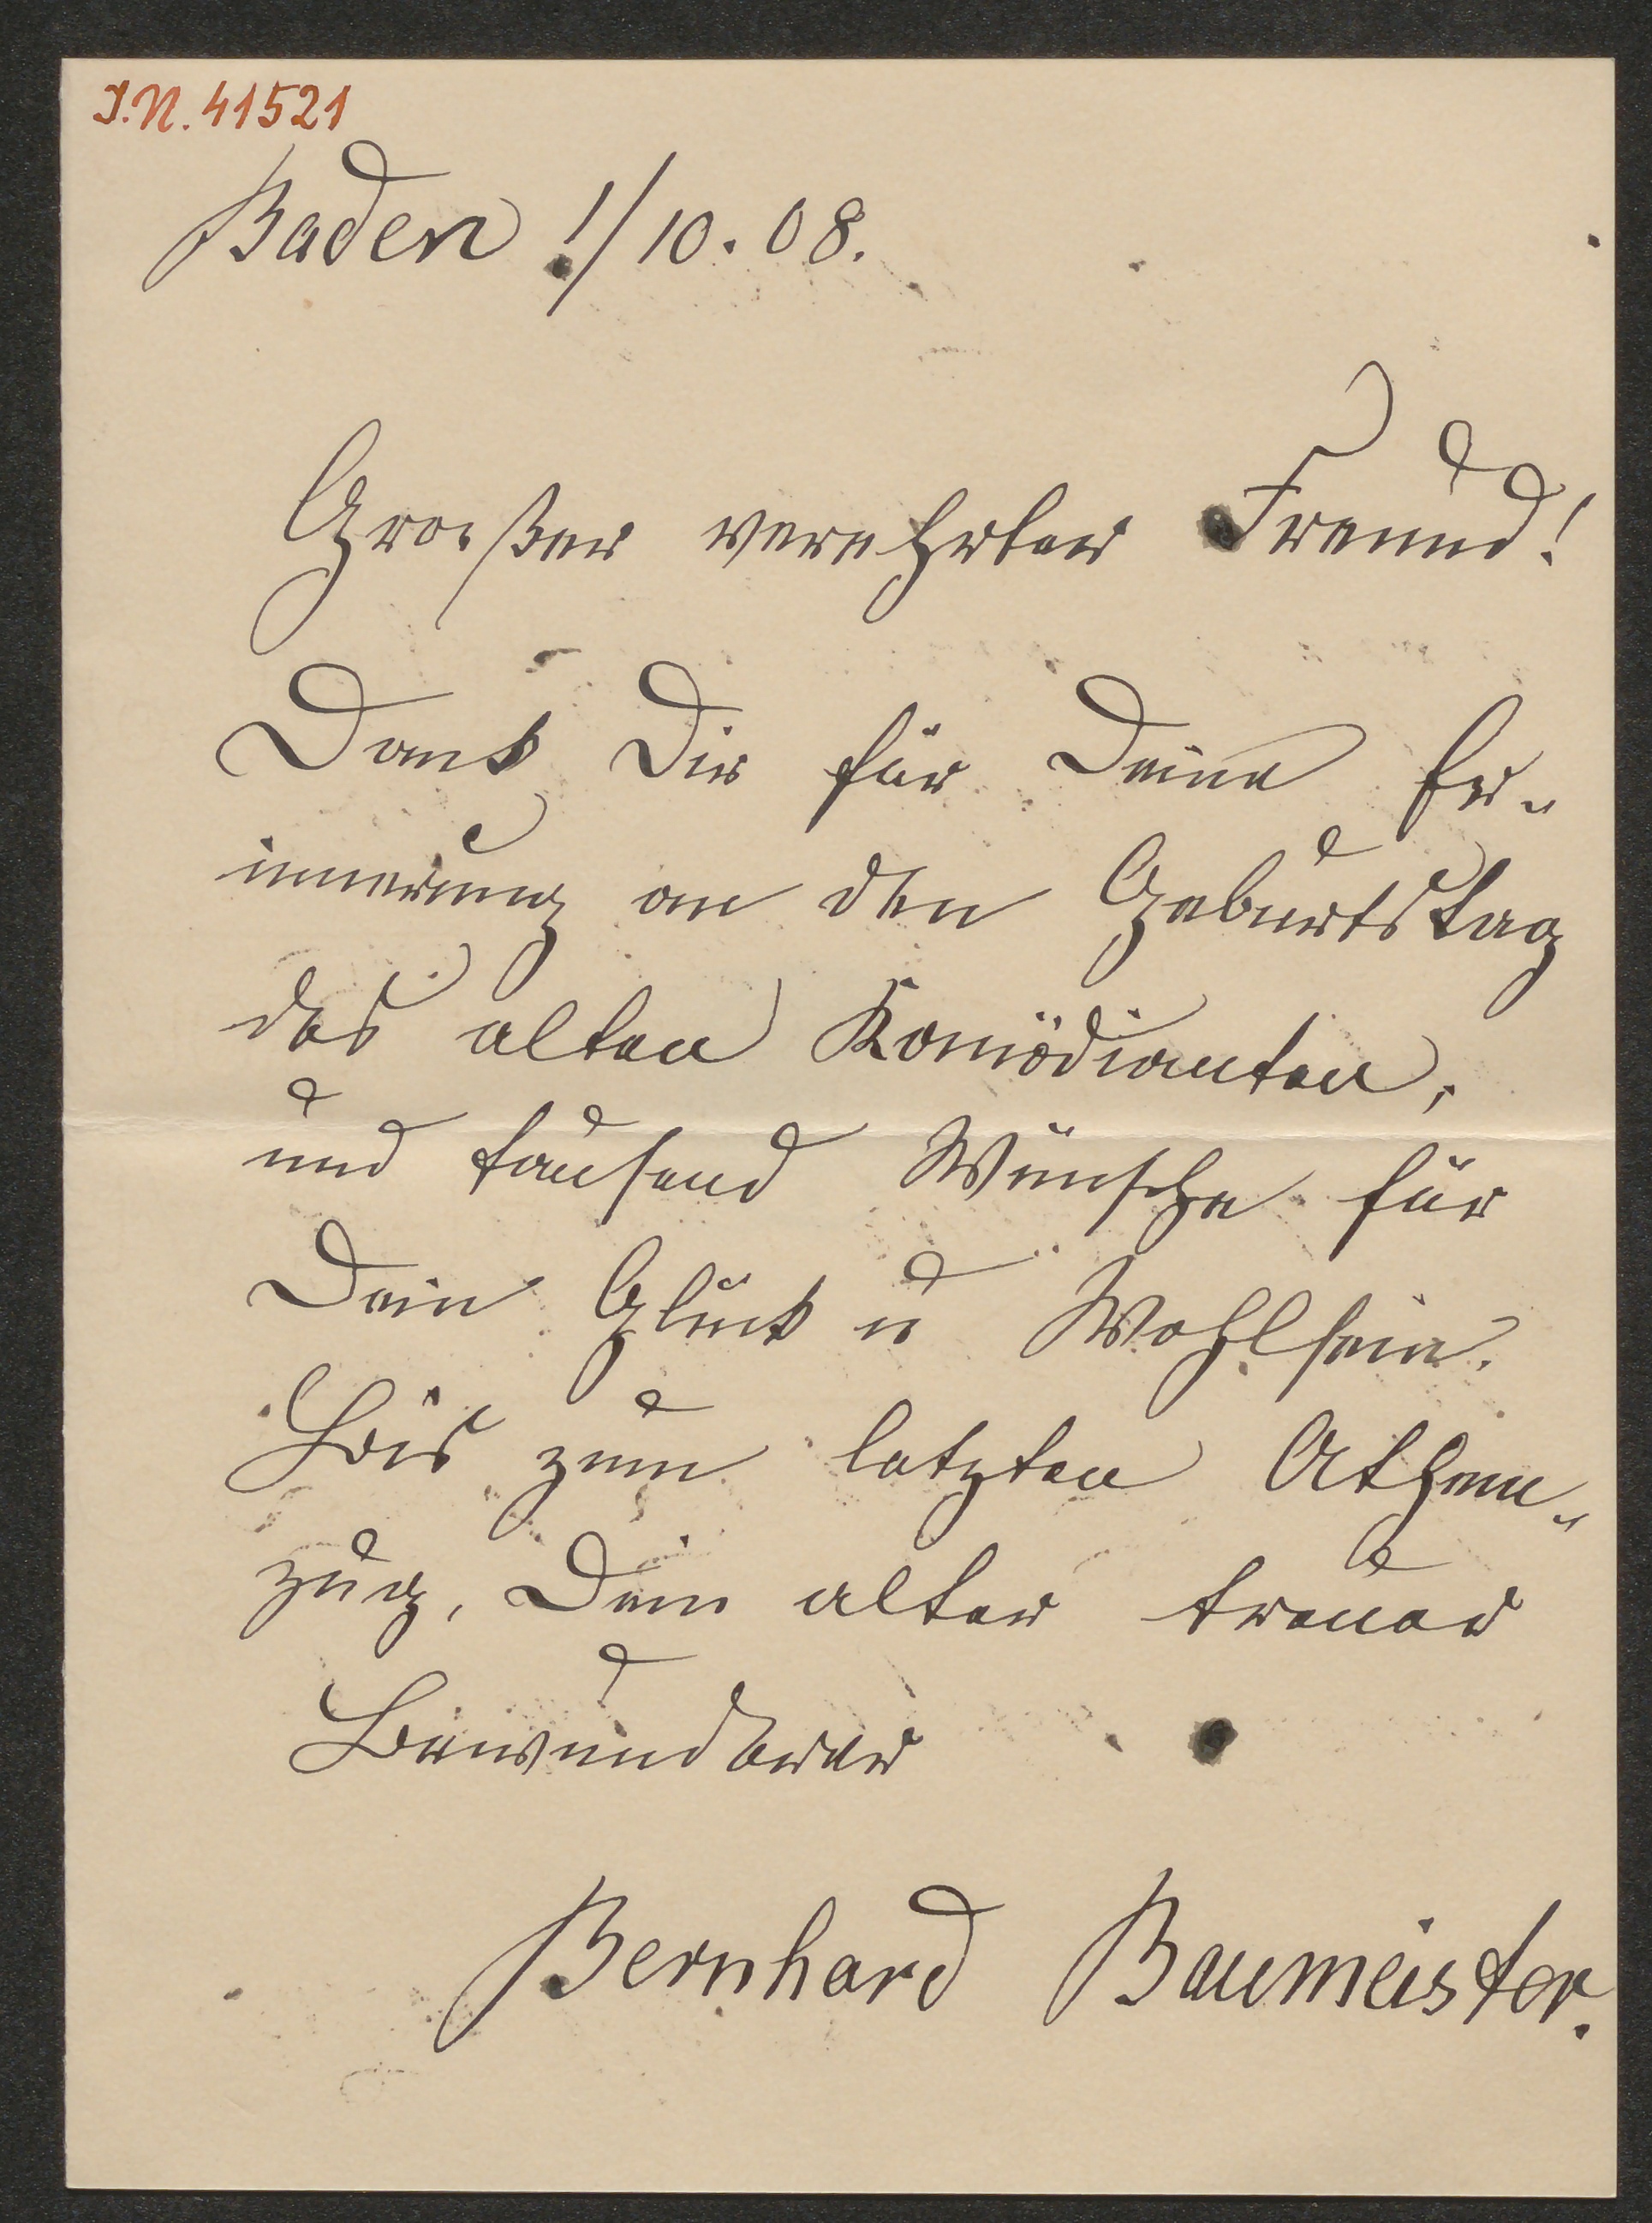 I.N. 41521
Baden 1/10. 08.
Großer verehrter Freund!
Dank Dir für Deine Er-
innerung an den Geburtstag
des alten Komödianten,
und tausend Wünsche für
Dein Glück u Wohlsein.
Bis zum letzten Athem-
zug, Dein alter treuer
Bewunderer
Bernhard Baumeister.